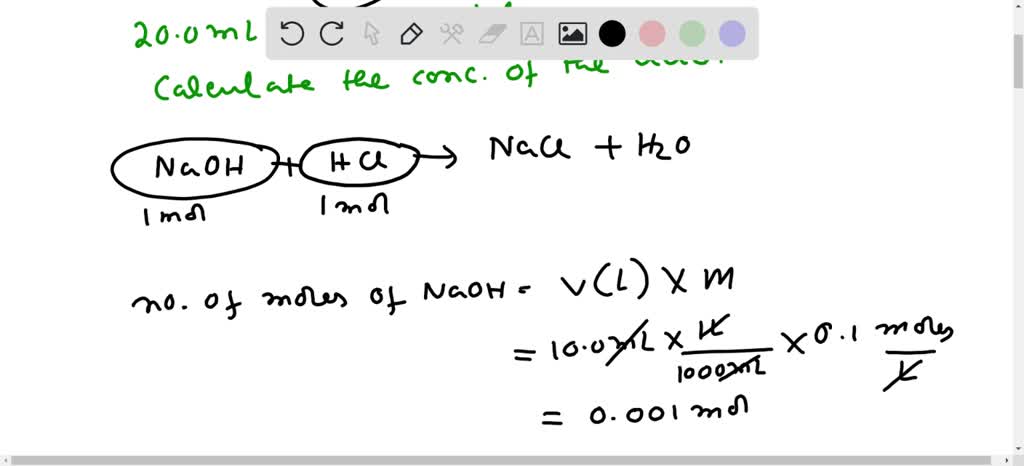 20.0mL
Calculate the conc. of the
NaOH + HCl → NaCl + H2O
1 mol 1 mol
no. of moles of NaOH = V(L) x M
= 10.0mL x 1L/1000mL x 0.1 moles/L
= 0.001 mol